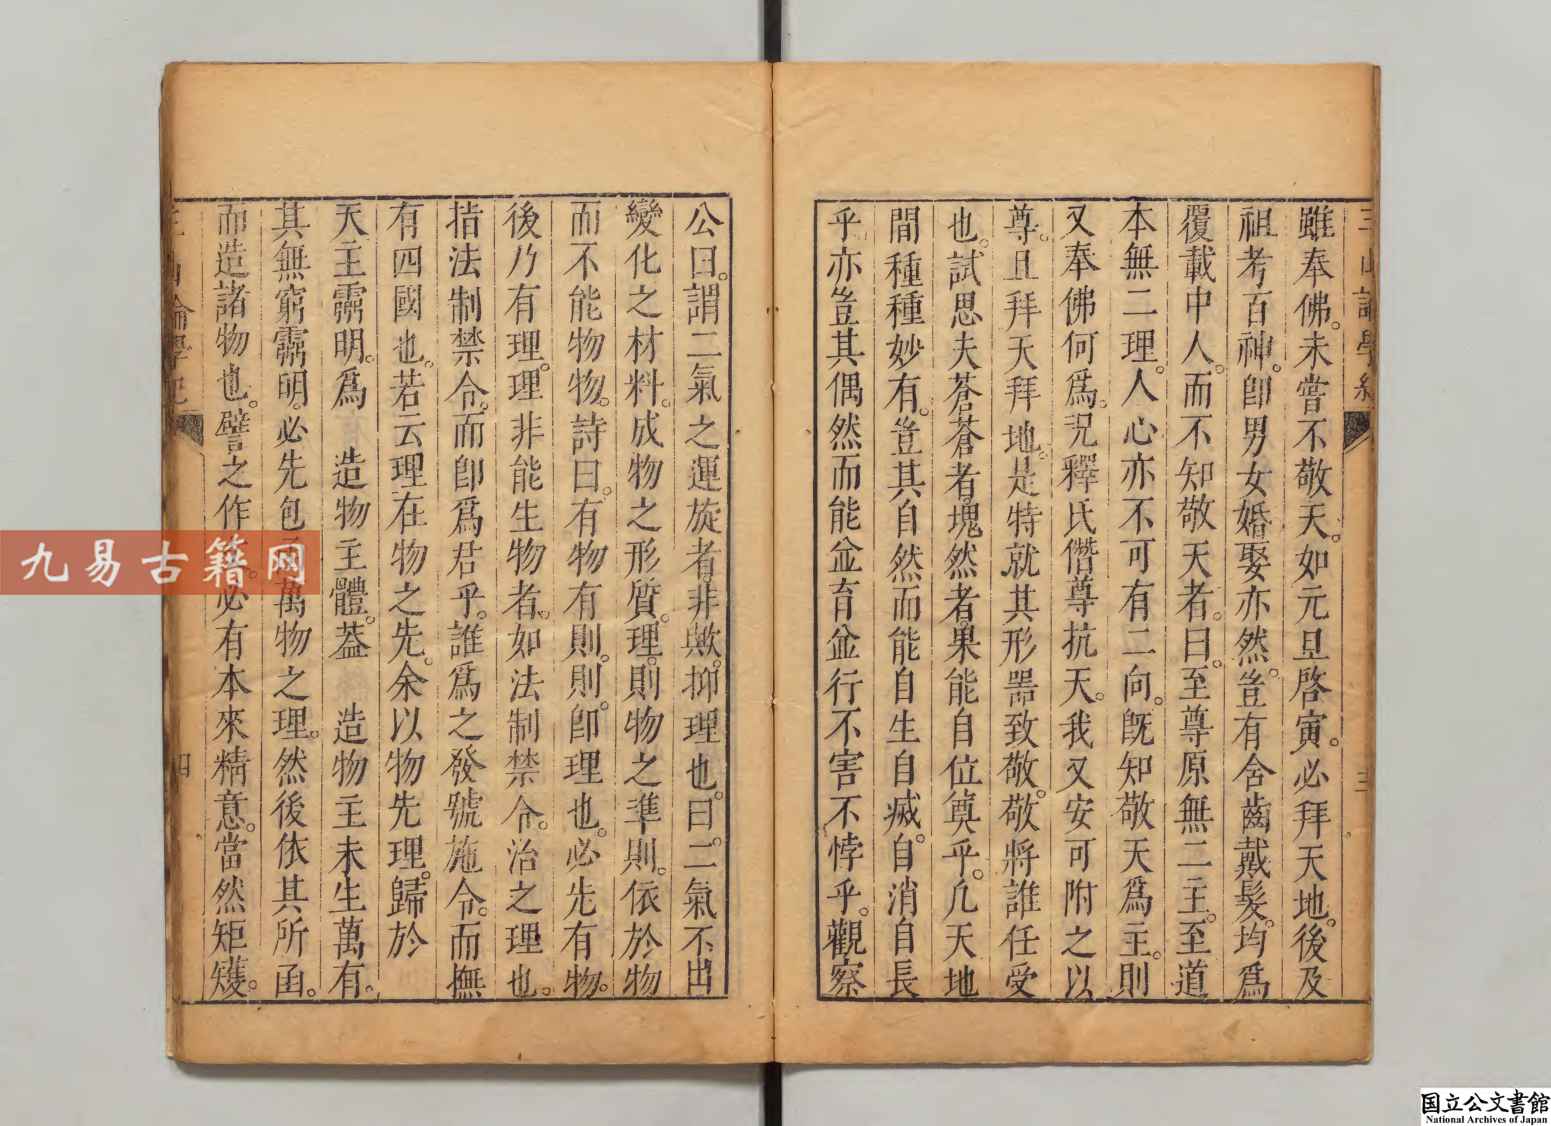 三山論學紀
雖奉佛。未嘗不敬天。如元旦啓寅。必拜天地。後及
祖考百神。卽男女婚娶亦然。豈有含齒戴髮。均爲
覆載中人。而不知敬天者。曰。至尊原無二主。至道
本無二理。人心亦不可有二向。旣知敬天爲主。則
又奉佛何爲。況釋氏僭尊抗天。我又安可附之以
尊。且拜天拜地。是特就其形噐致敬。敬將誰任受
也。試思夫蒼蒼者。塊然者。果能自位奠乎。凡天地
間種種妙有。豈其自然而能自生自滅。自消自長
乎。亦豈其偶然而能並育並行不害不悖乎。觀察
公曰。謂二氣之運旋者非歟。抑理也。曰。二氣不出
變化之材料。成物之形質。理。則物之準則。依於物
而不能物物。詩曰。有物有則。則。卽理也。必先有物。
後乃有理。理非能生物者。如法制禁令。治之理也。
指法制禁令。而卽爲君乎。誰爲之發號施令。而撫
有四國也。若云理在物之先。余以物先理。歸於
天主靈明。爲 造物主體。蓋 造物主未生萬有。
其無窮靈明。必先包萬物之理。然後依其所函。
而造諸物也。譬之作必有本來精意。當然矩矱。
三山論學記
四
九易古籍网
国立公文書館
National Archives of Japan